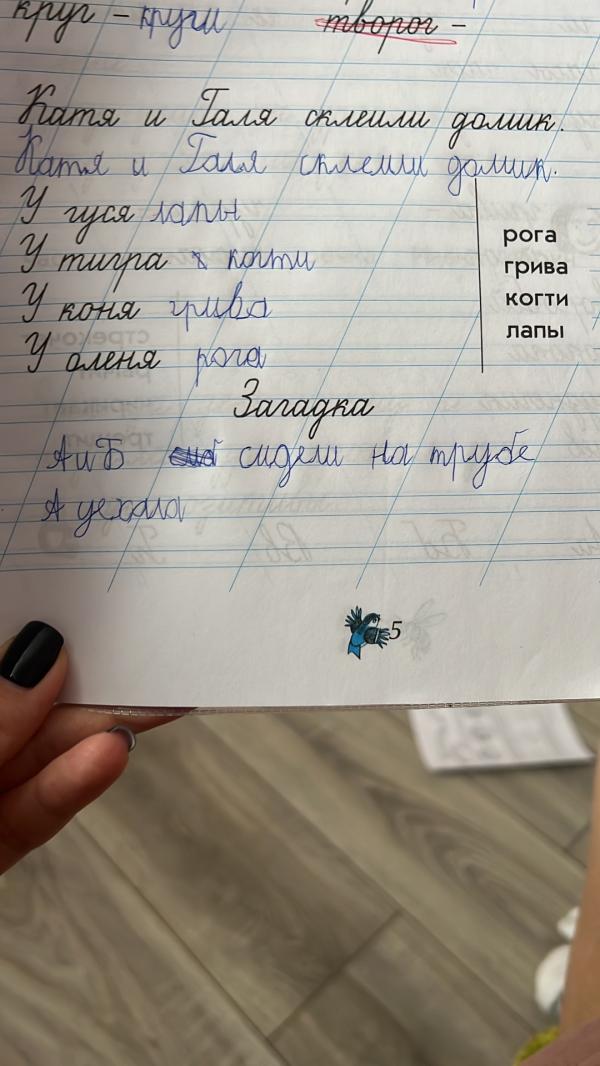 круг – круги творог –
Катя и Галя склеили домик.
Катя и Галя склеили домик.
У гуся лапы
У тигра когти
У коня грива
У оленя рога
рога
грива
когти
лапы
Загадка
А и Б сидели на трубе
А уехала
5